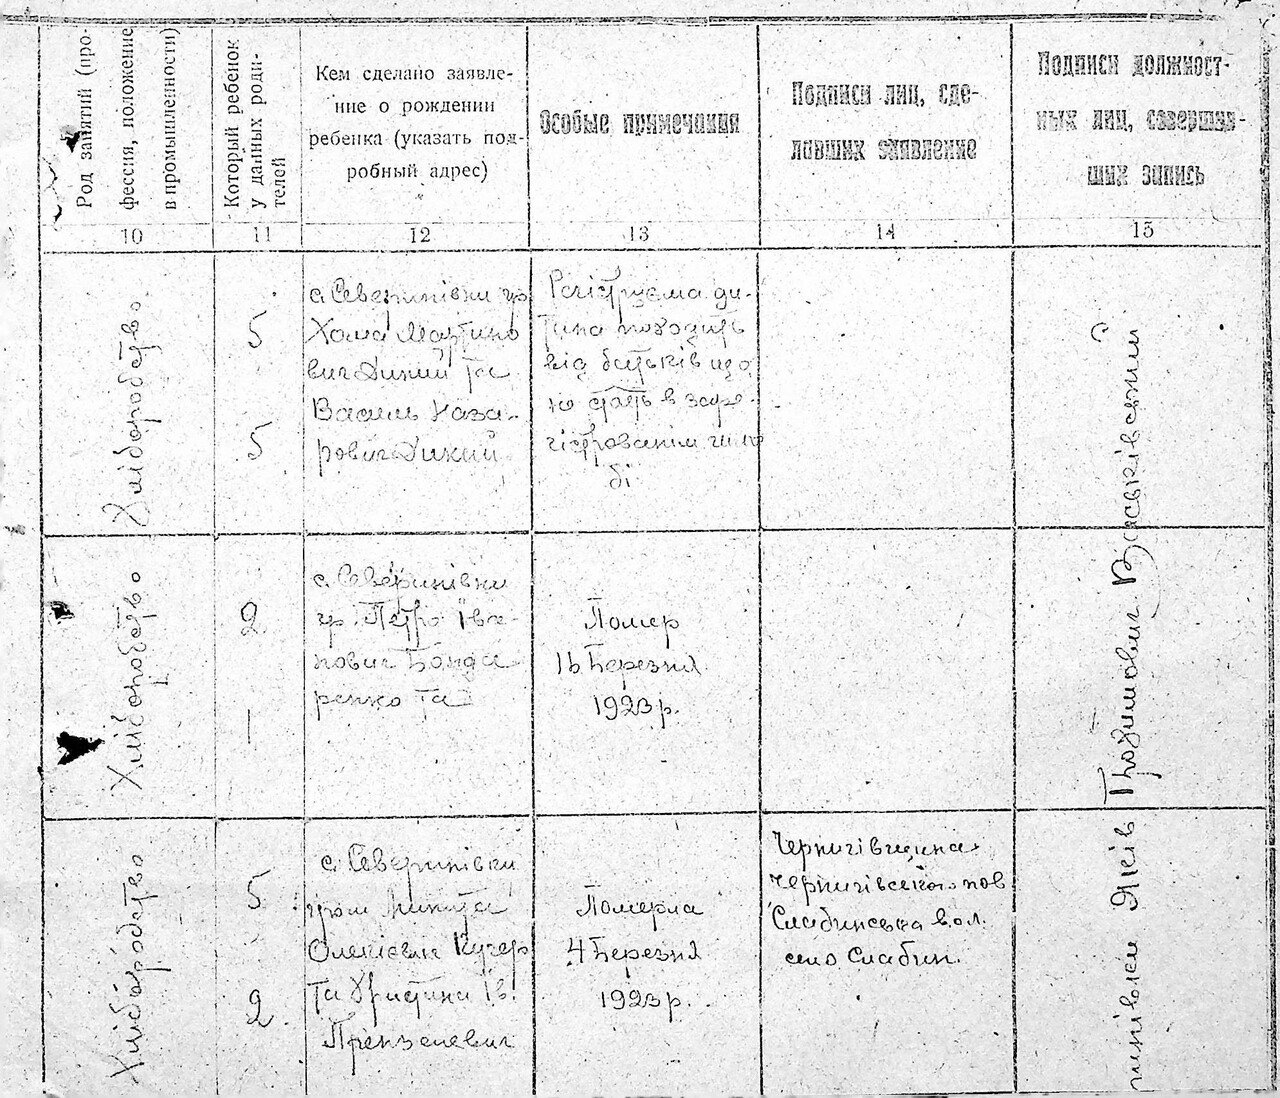 Род занятий (про-
фессия, положение
в промышленности)
Который ребенок
у данных роди-
телей
Кем сделано заявле-
ние о рождении
ребенка (указать под-
робный адрес)
Особые примечания
Подписи лиц, сде-
лавших заявление
Подписи должност-
ных лиц, совершив-
ших запись
10
11
12
13
14
15
Хліборобство
5
5
с. Северинівки гр
Хома Мартино
вич Дикий та
Василь Наза-
рович Дикий
Регіструєма ди-
тина походить
від батьків що
не стать в заре-
гістрованім шлю
бі
Хліборобство
2
с. Северинівки
гр. Петро Іва-
нович Бонда
ренко та
Помер
16 Березня
1923 р.
Хліборобство
5
2
с. Северинівки
гр-ни Микита
Олексієвич Кучер
та Христина Ів.
Померла
4 Березня
1923 р.
Чернигівщина
Чернигівського пов
Слабинська вол.
село Слабин.
Яків Трохимович Васьківський